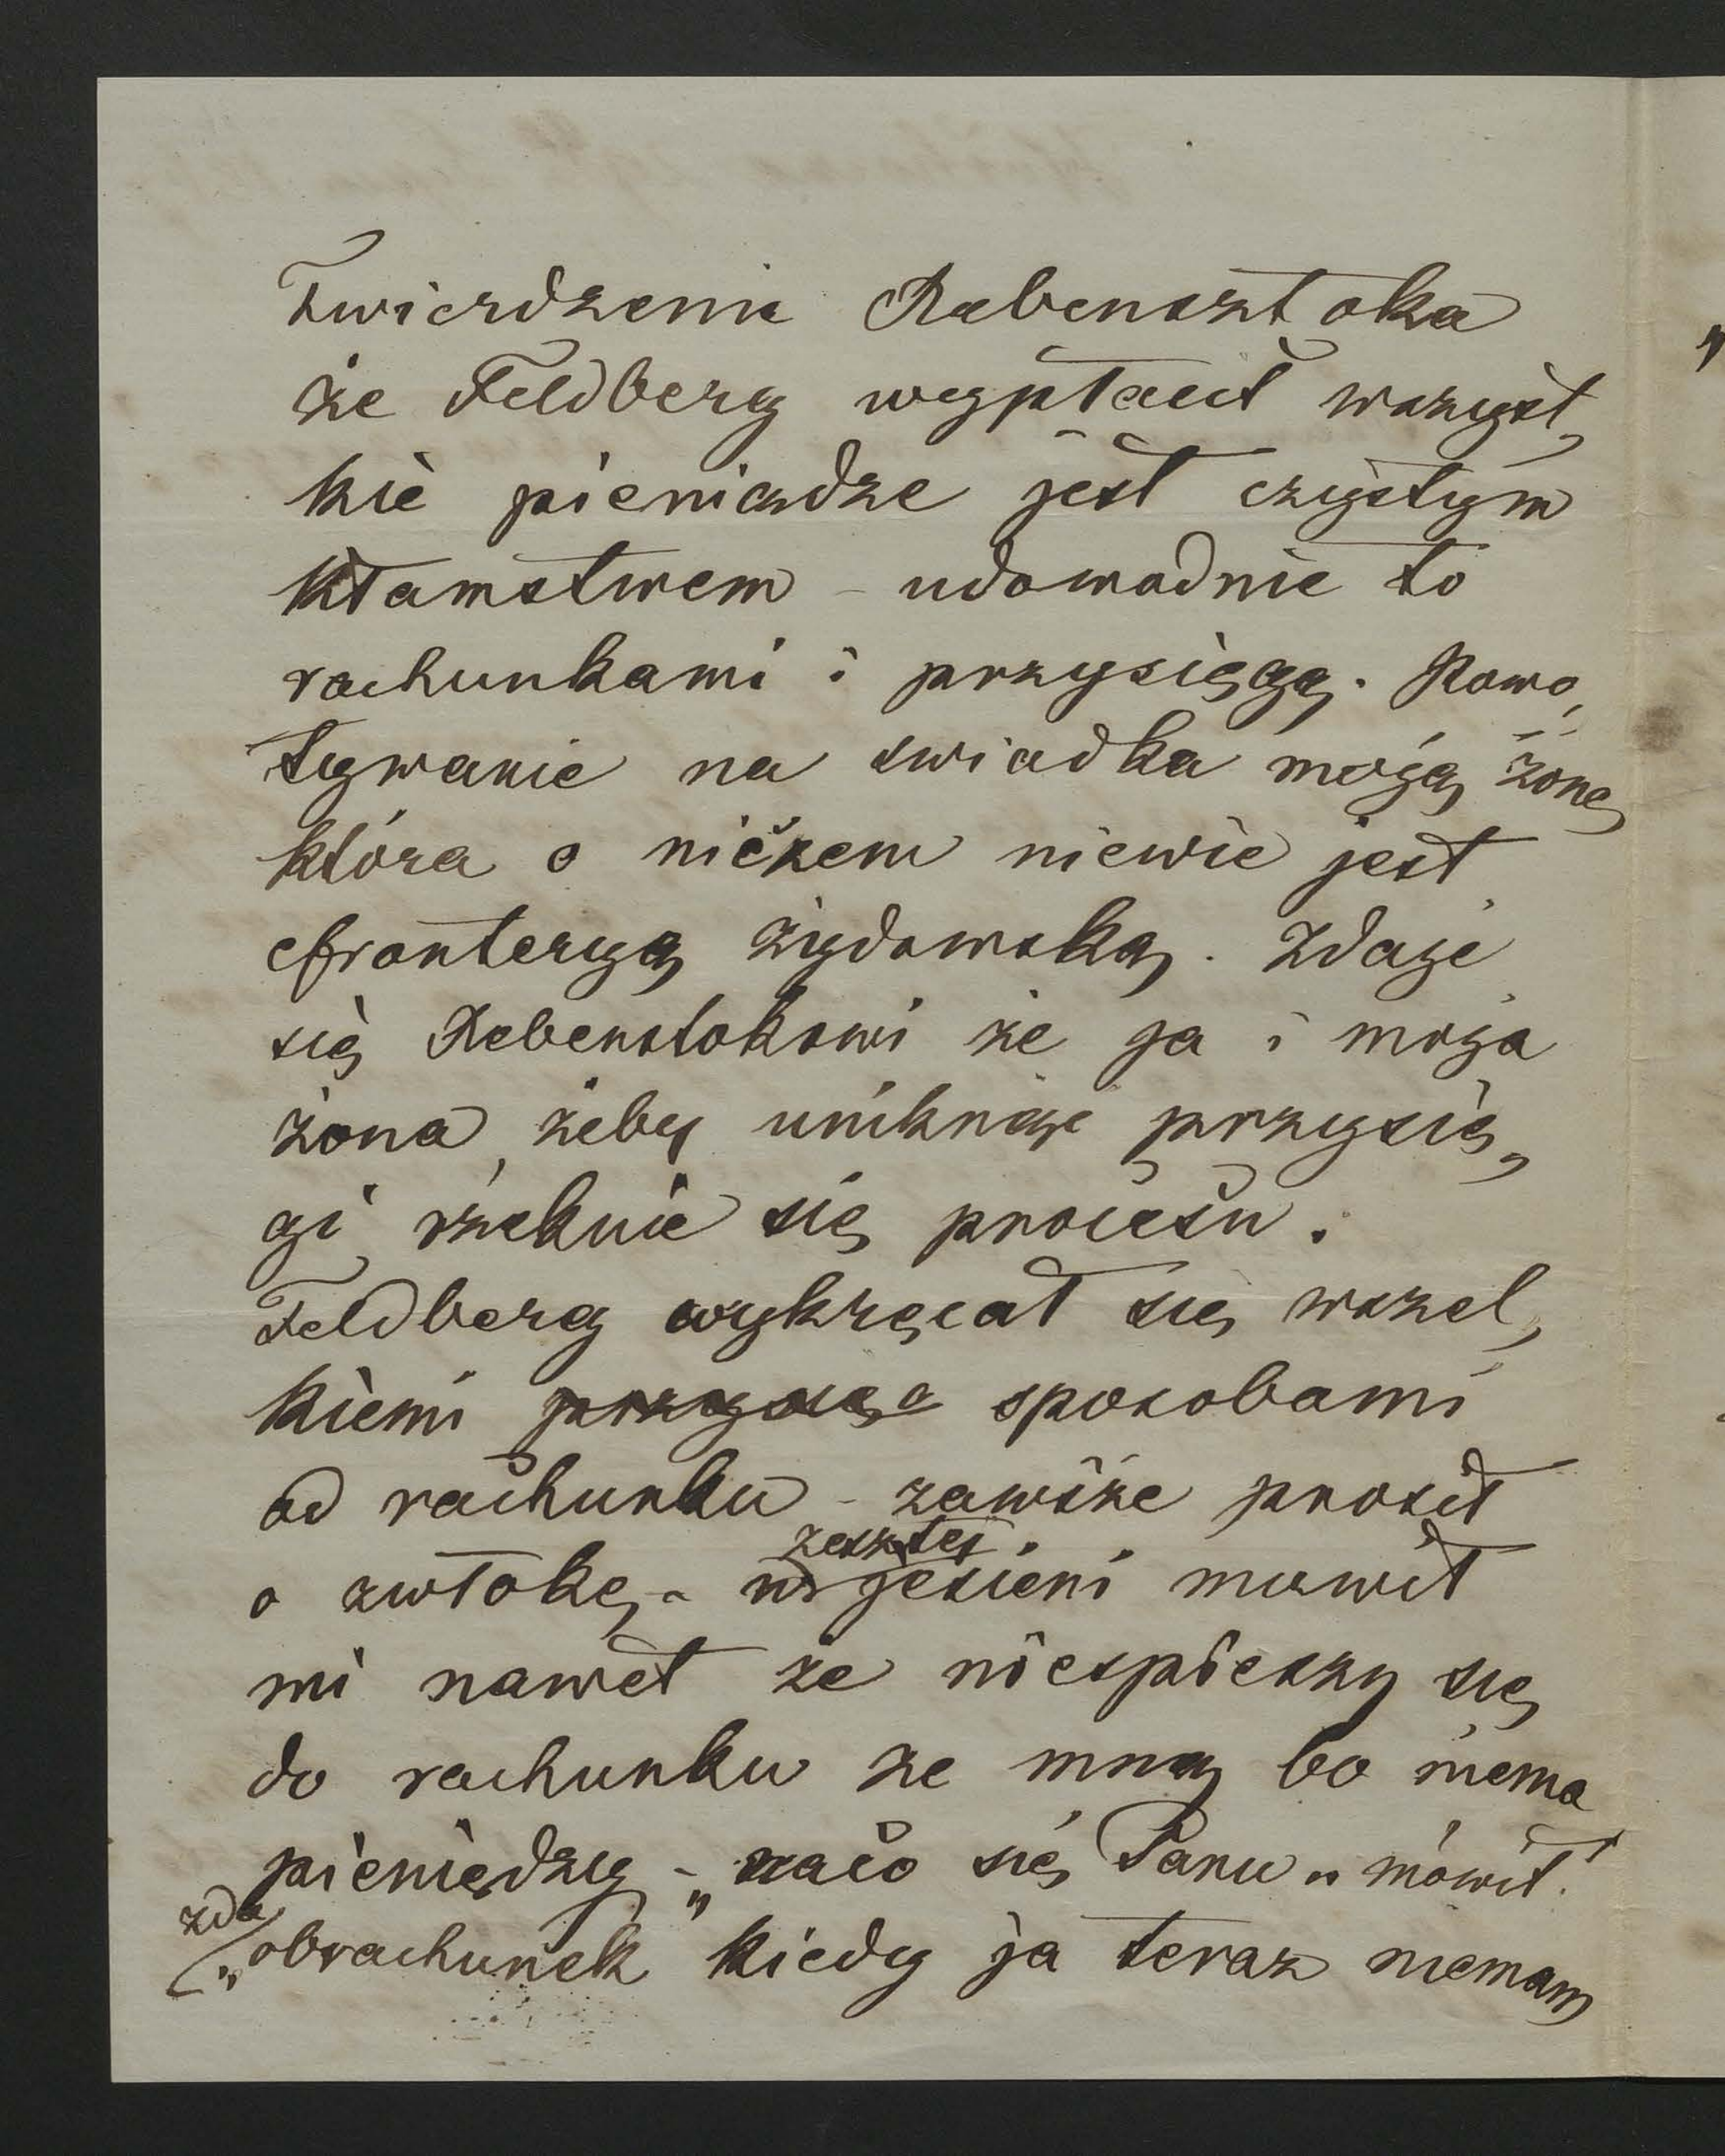 Twierdzenie Rebensztoka
że Feldberg wypłacił wszyst„
kie pieniądze jest czystym
kłamstwem – udowodnie to
rachunkami i przysięgą. Powo„
ływanie na swiadka moją żonę
która o niczem niewie jest
efronteryą żydowską. Zdaje
się Rebenstokowi że ja i moja
żona, żeby uniknąć przysię„
gi, rzeknie się procesu.
Feldberg wykręcał się wszel„
kiemi sposobami
od rachunku – zawsze prosił
o zwłokę – w zeszłej jesieni mowił
mi nawet że niespieszy się
do rachunku ze mną bo niema
pieniędzy – „naco się Panu" mówił.
„zda obrachunek kiedy ja teraz niemam